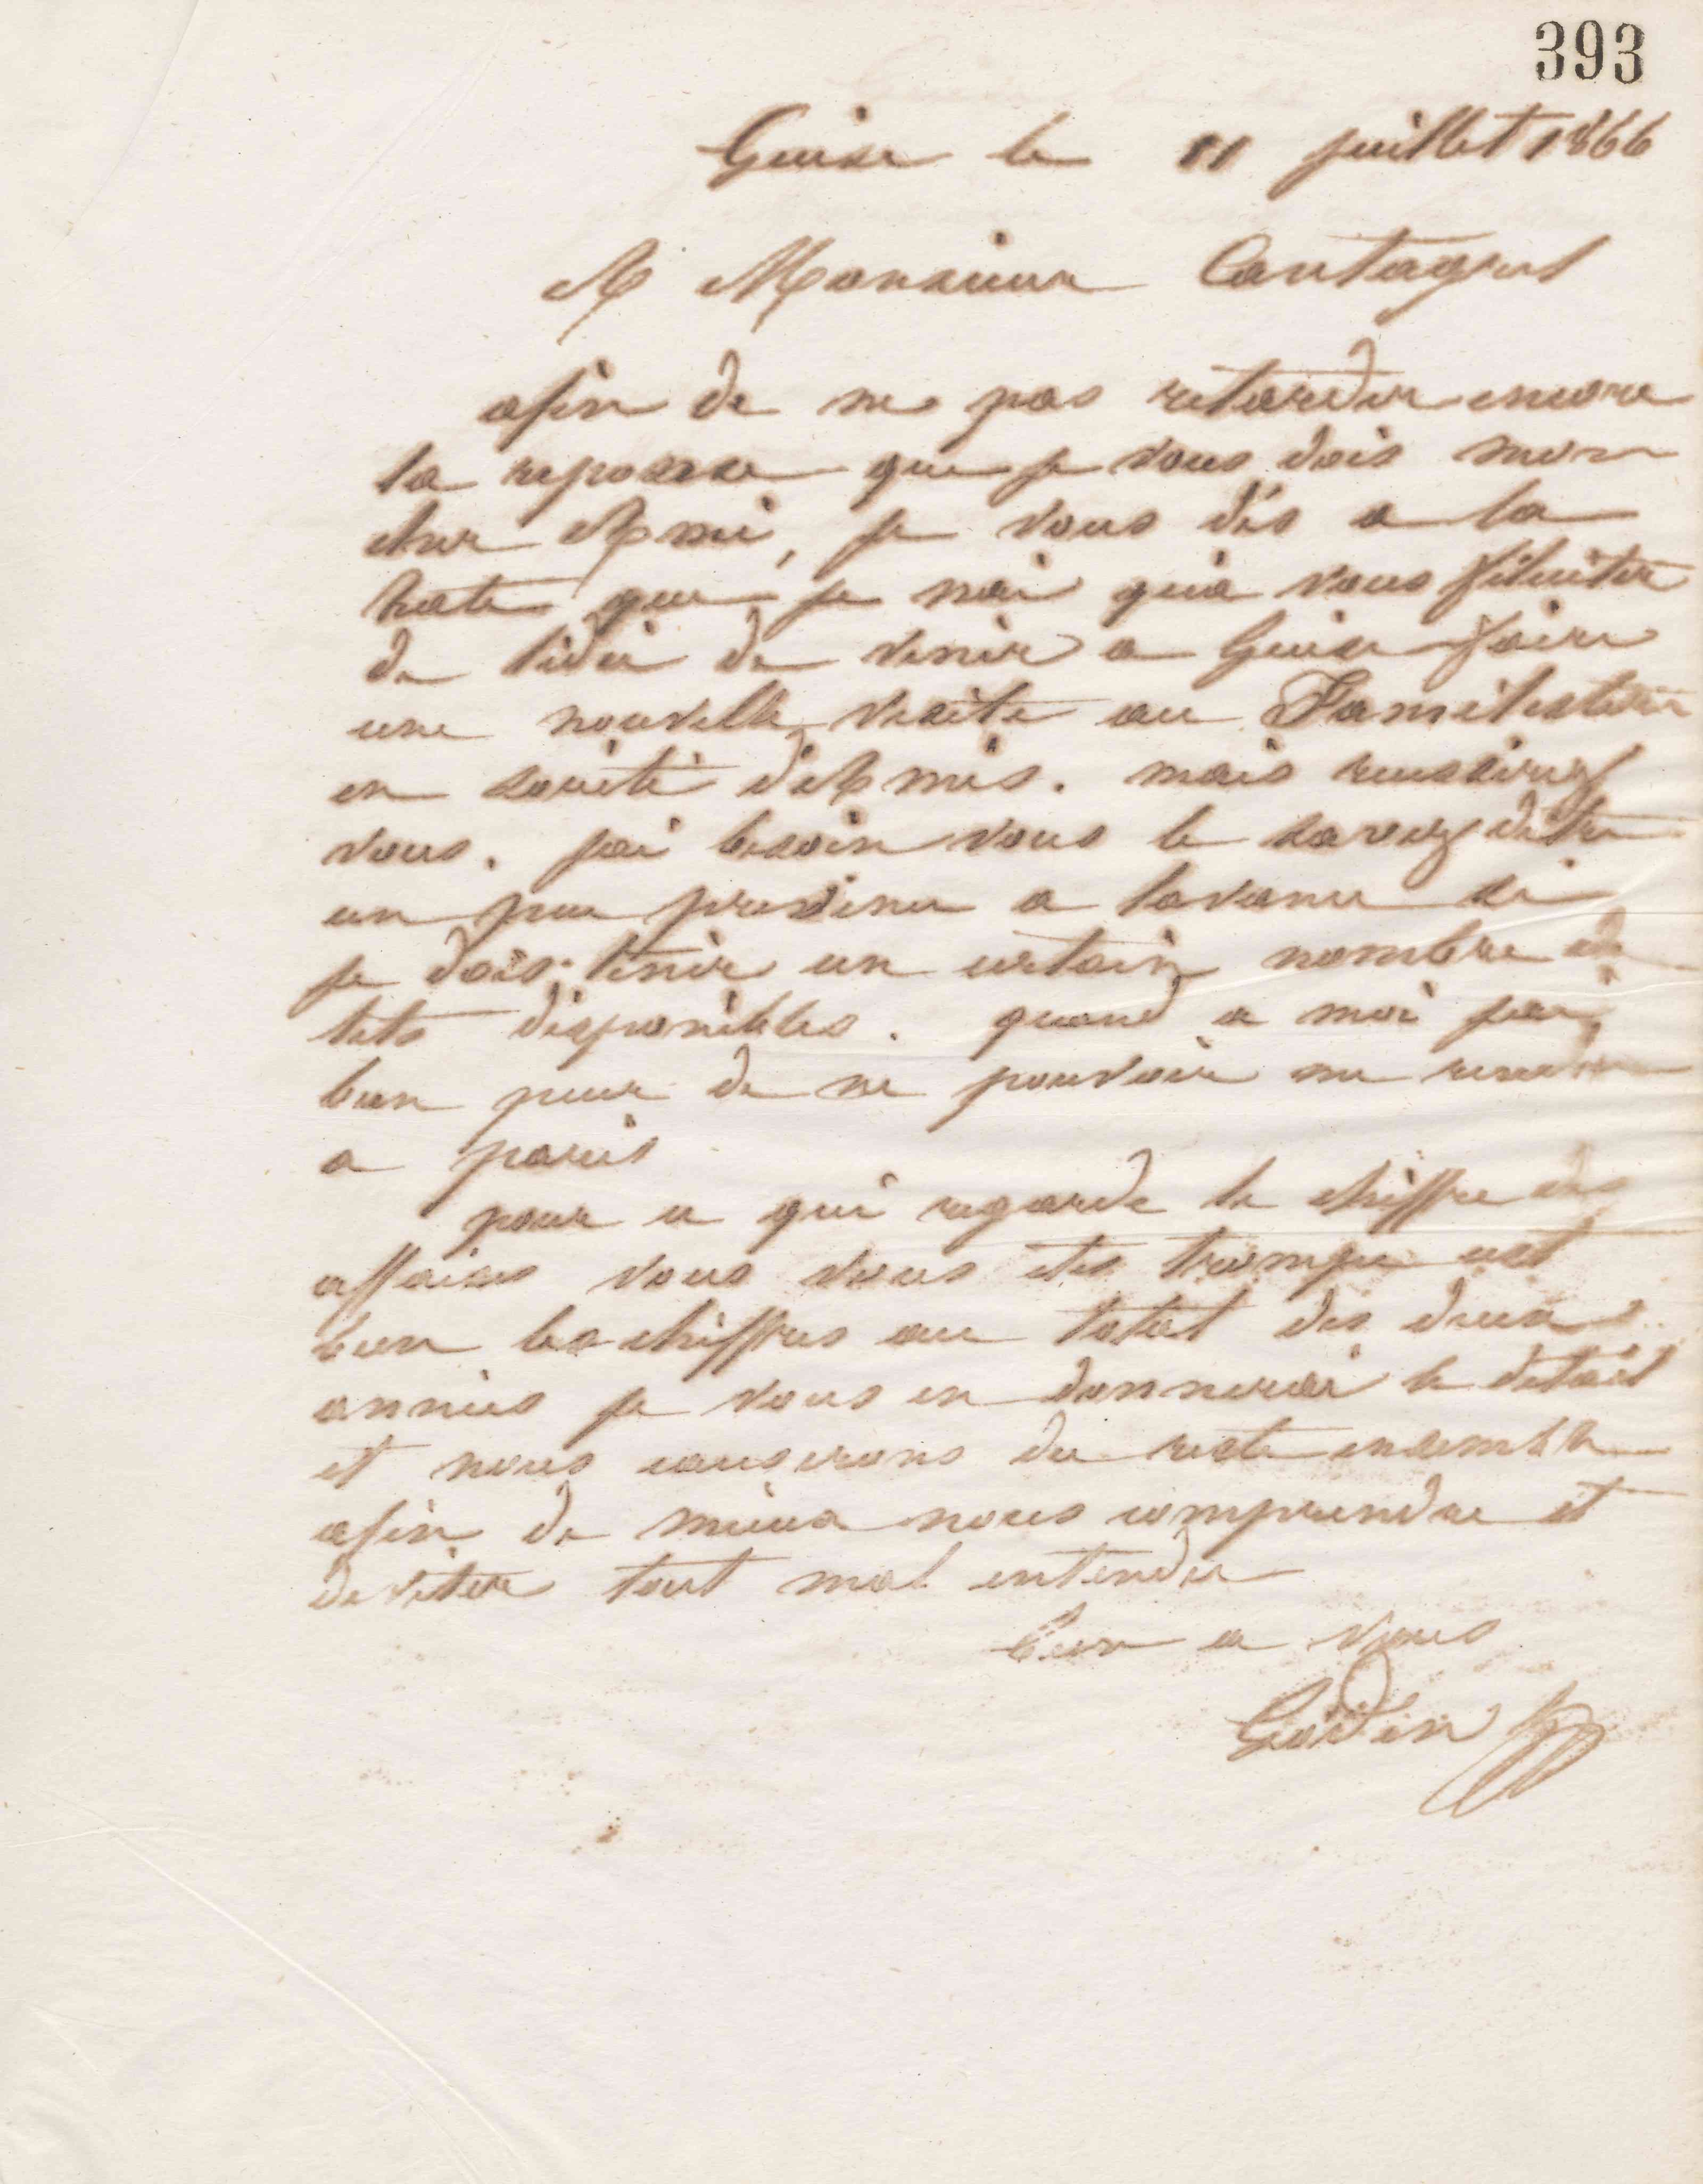 393
Guise le 11 juillet 1866
A Monsieur Cantagrel
afin de ne pas retarder encore
la reponse que je vous dois mon
cher Ami, je vous dis a la
hate que je nai qua vous féliciter
de lidée de venir a Guise faire
une nouvelle visite au Familistère
en société dAmis. mais reussirez
vous. jai besoin vous le savez detre
un peu prevenu a lavance si
je dois tenir un certain nombre de
lits disponibles. quand a moi jai
bien peur de ne pouvoir me rendre
a paris
pour ce qui regarde le chiffre des
affaires vous vous etes trompé cest
bien les chiffres au total des deux
années je vous en donnerai le detail
et nous causerons du reste ensemble
afin de mieux nous comprendre et
deviter tout mal entendu
bien a vous
Godin